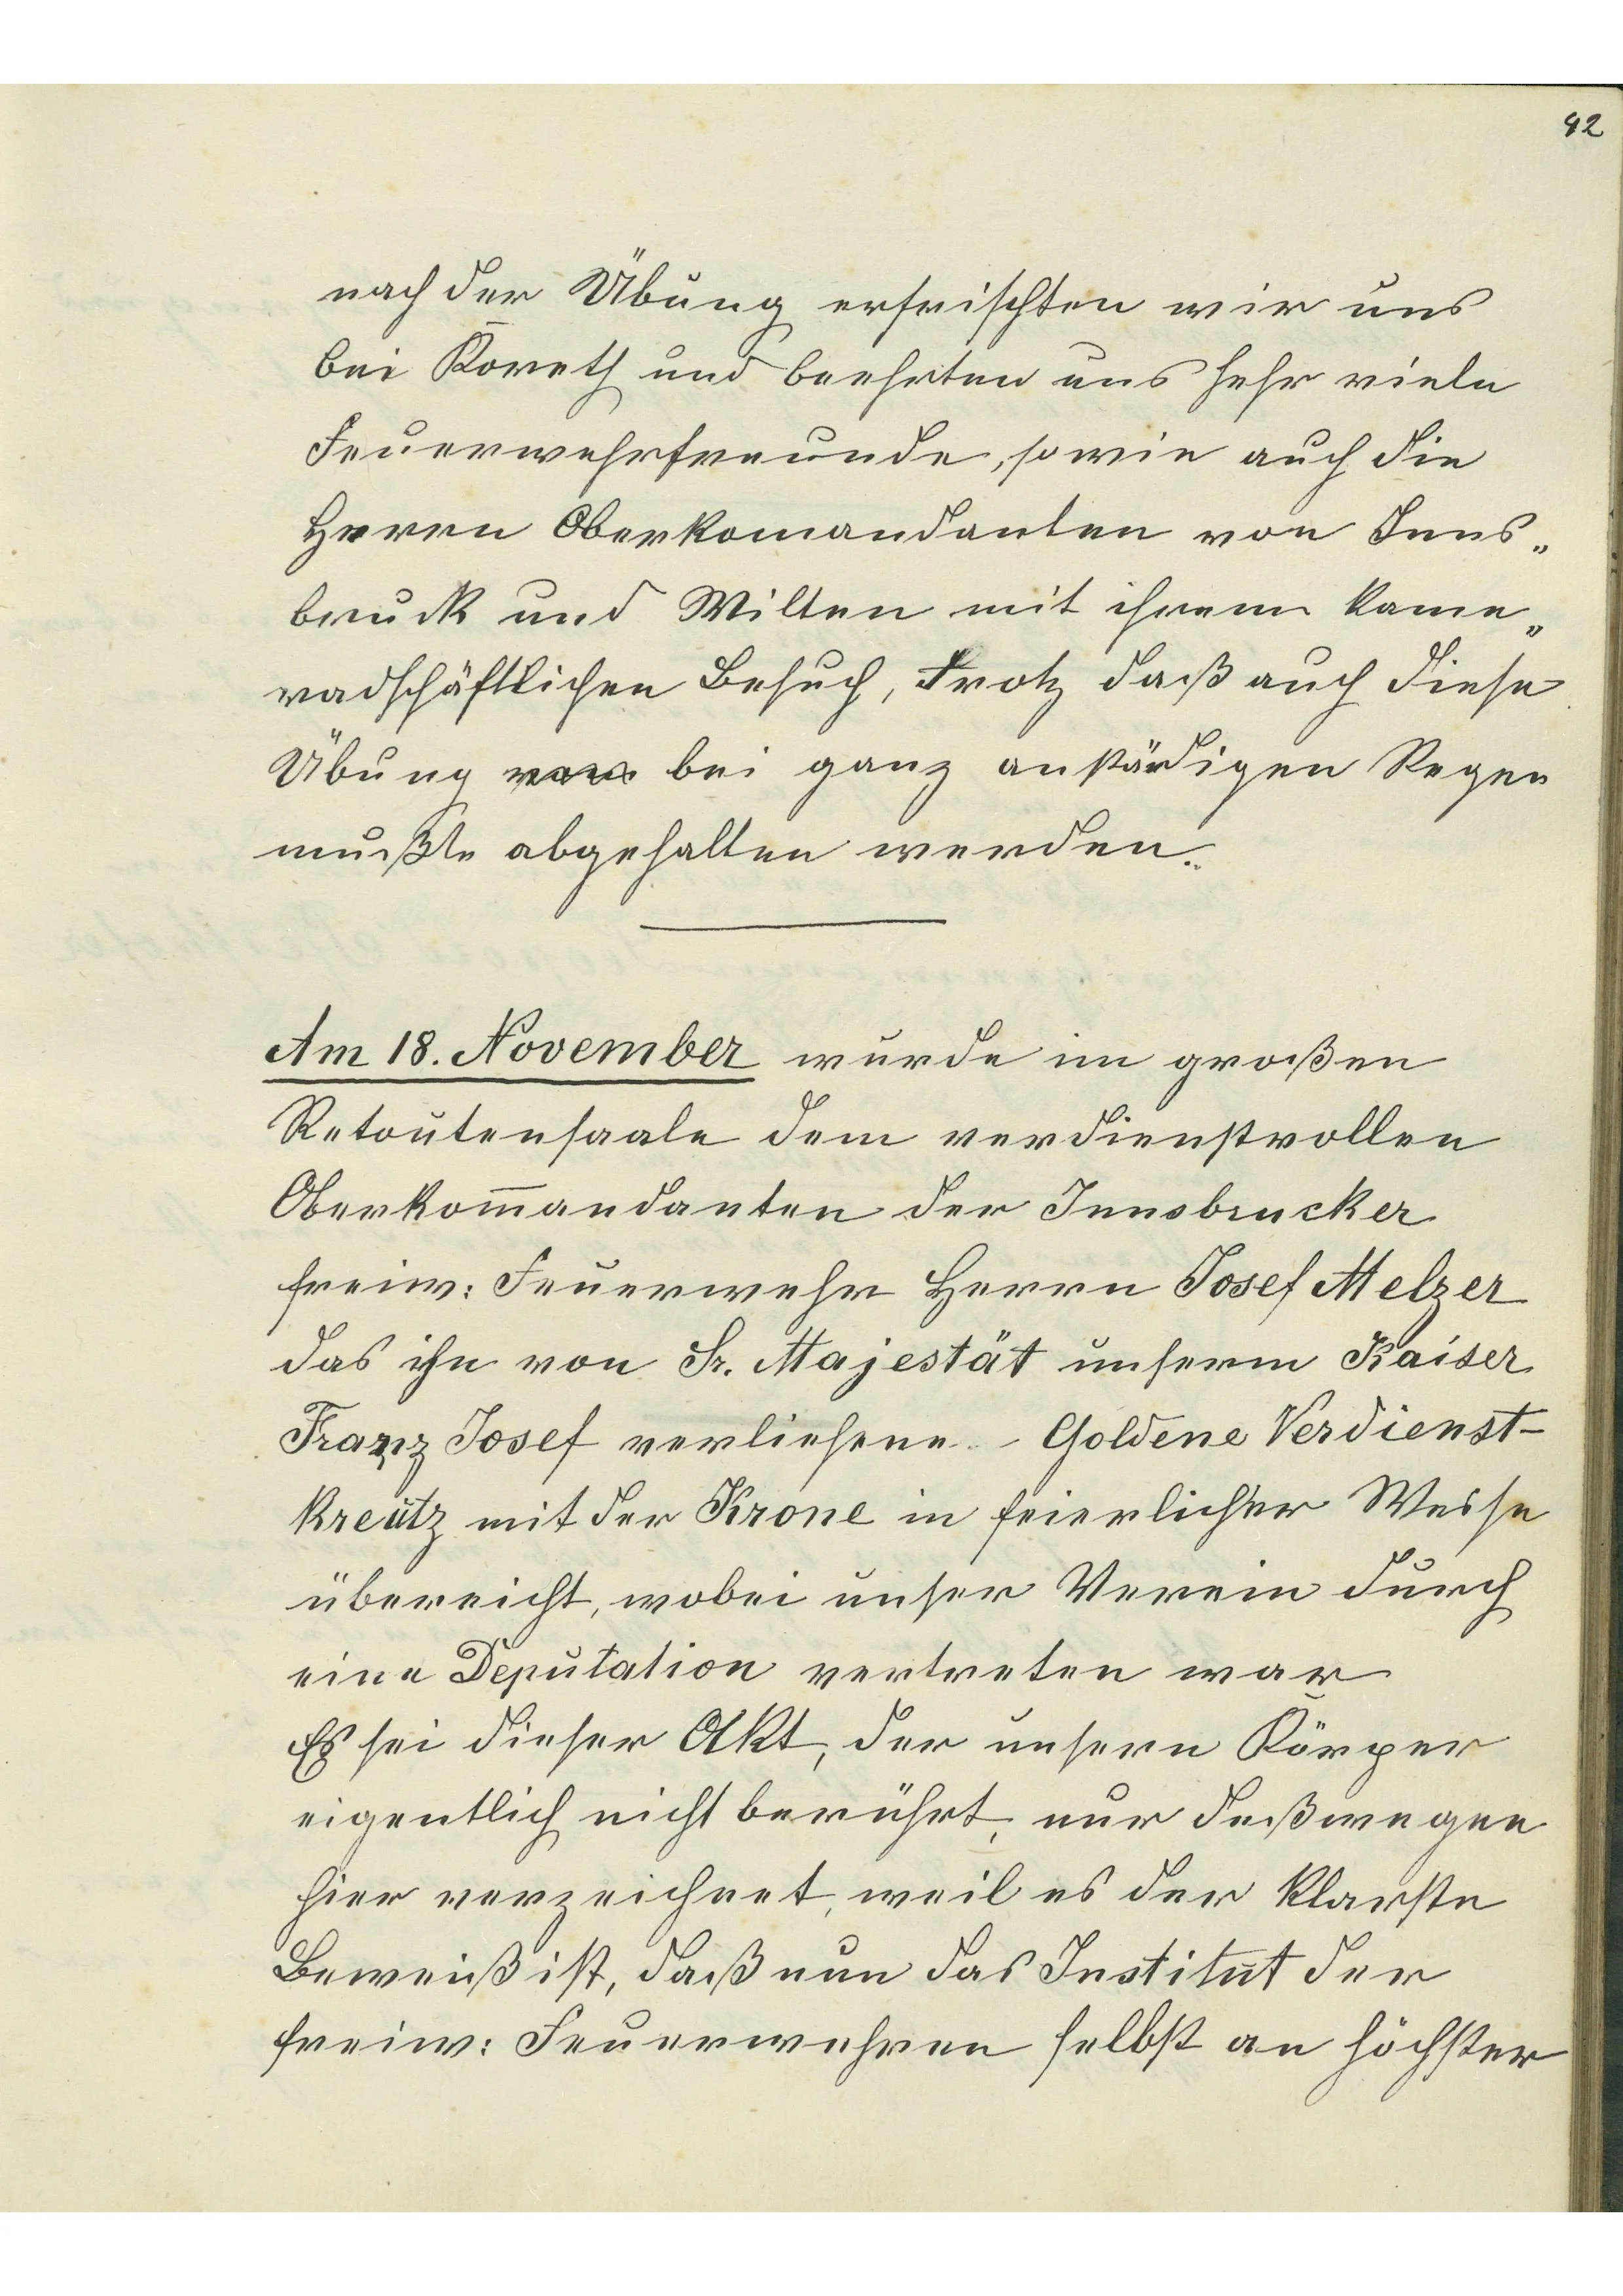 42
nach der Übung erfrischten wir uns
bei Koreth und beehrten uns sehr viele
Feuerwehrfreunde, sowie auch die
Herrn Oberkomandanten von Inns„
bruck und Wilten mit ihrem kame„
radschäftlichen Besuch, trotz daß auch diese
Übung bei ganz anständigen Regen
mußte abgehalten werden.
Am 18. November wurde im großen
Retoutensaale dem verdienstvollen
Oberkom̄andanten der Innsbrucker
freiw: Feuerwehr Herrn Josef Melzer
das ihn von Sr. Majestät unserm Kaiser
Franz Josef verliehene - Goldene Verdienst-
kreutz mit der Krone in feierlicher Weise
übereicht, wobei unser Verein durch
eine Deputation vertreten war
Es sei dieser Akt, der unsern Körper
eigentlich nicht berührt, nur deßwegen
hier verzeichnet, weil es der klarste
Beweiß ist, daß nun das Institut der
freiw: Feuerwehren selbst an höchster